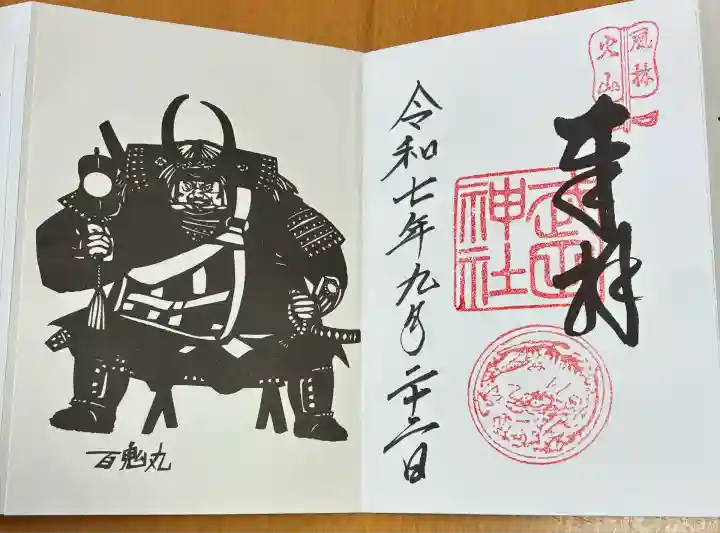 風林
火山
奉拝
武田
神社
令和七年九月二十二日
百鬼丸